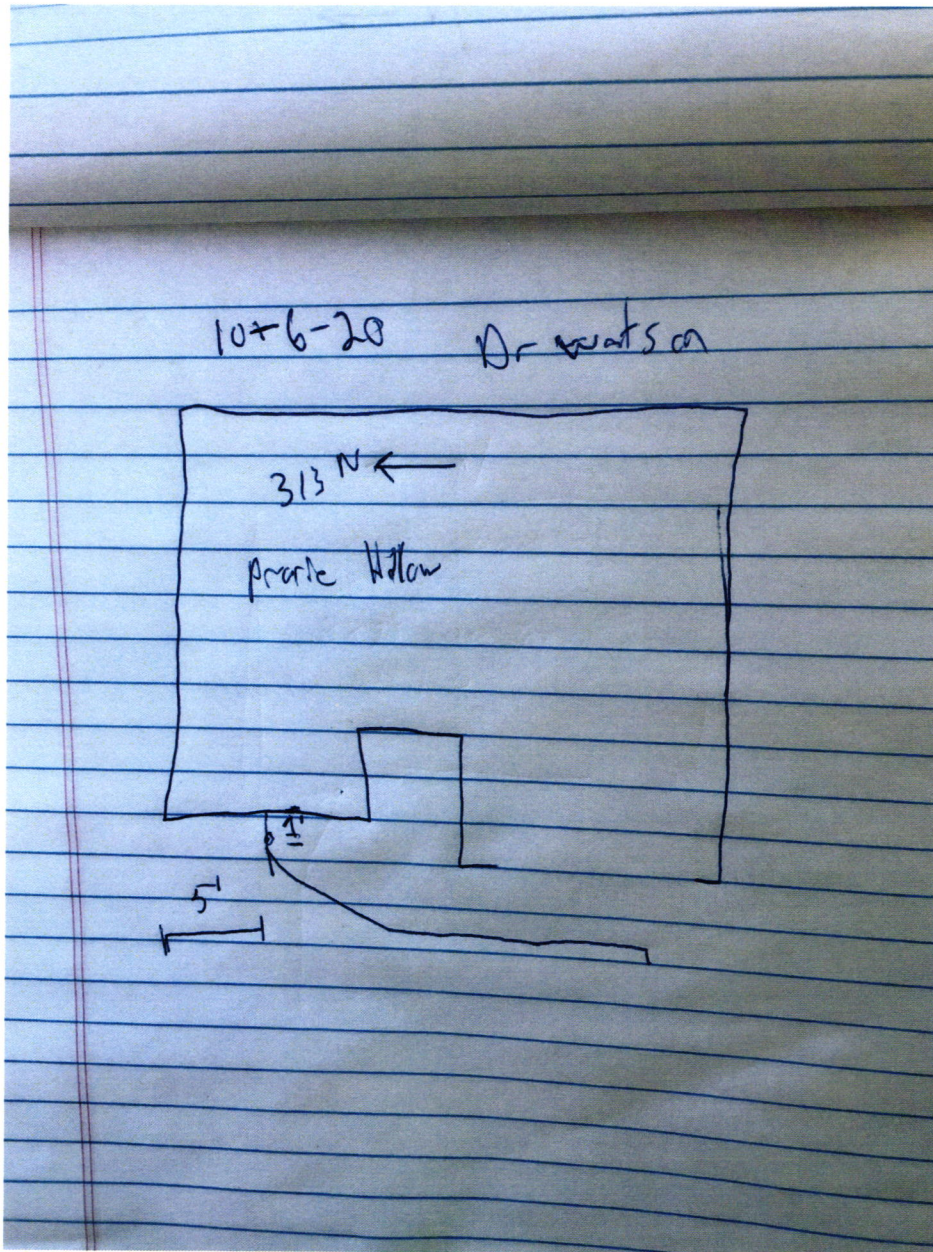 10-6-20 Dr watson
313 N ←
prarie Hollow
1'
5'